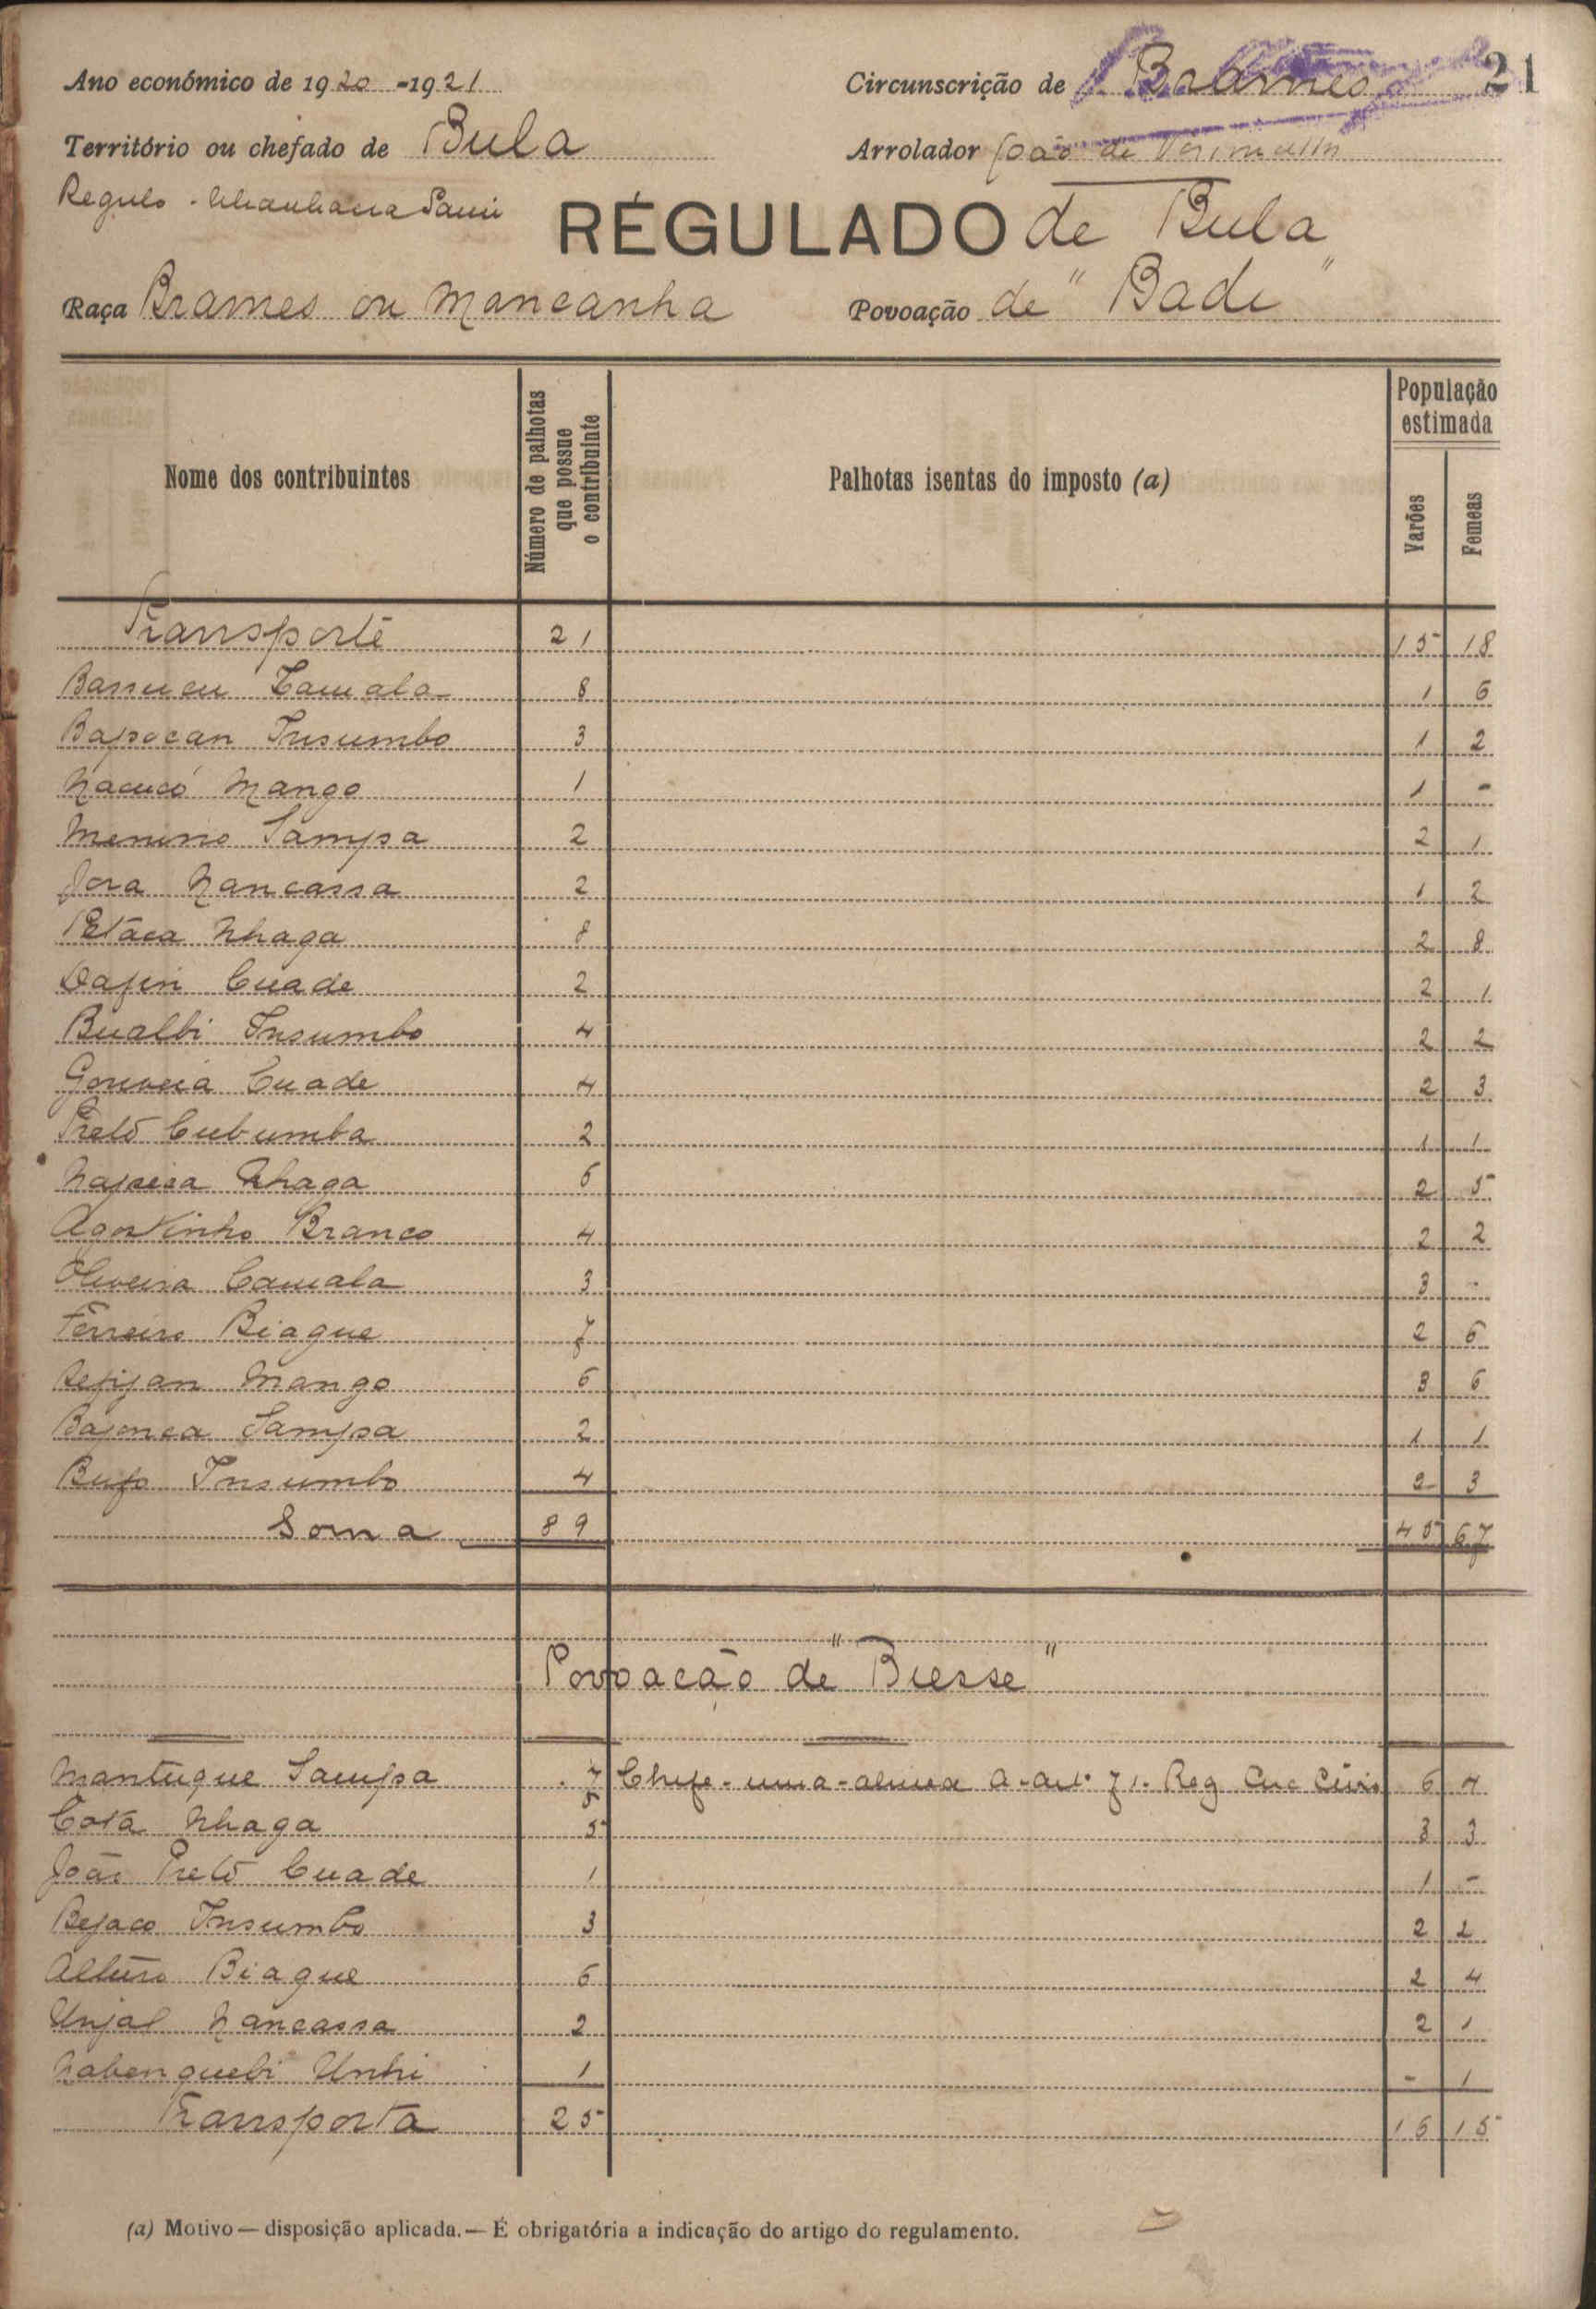 Ano económico de 1920-1921
Circunscrição de Brames 21
Território ou chefado de Bula
Arrolador João de
Regulo -
RÉGULADO de Bula
Raça Brames ou Mancanha
Povoação de "Bade"
Nome dos contribuintes
Número de palhotas que possue o contribuinte
Palhotas isentas do imposto (a)
População estimada
Varões
Femeas
Transporte 21 15 18
Bassucu Camala 8 1 6
Bapocan Insumbo 3 1 2
Nacucó Mango 1 1 -
Menino Sampa 2 2 1
Jora Nancassa 2 1 2
Petaca Nhaga 8 2 8
Dafin Cuade 2 2 1
Bualbi Insumbo 4 2 2
Gouveia Cuade 4 2 3
Preto Cubumba 2 1 1
Napeca Nhaga 6 2 5
Agostinho Branco 4 2 2
Oliveira Camala 3 3 -
Ferreiro Biague 7 2 6
Refijan Mango 6 3 6
Bajonca Sampa 2 1 1
Bufo Insumbo 4 2 3
Soma 89 45 67
Povoação de "Biesse"
Mantuque Sampa 7 Chefe - uma - alinea a - art.º 71. Reg Circ Civis 6 4
Cota Nhaga 5 3 3
João Preto Cuade 1 1 -
Bejaco Insumbo 3 2 2
Arturo Biague 6 2 4
Unjal Nancassa 2 2 1
Nabenquebi Unhi 1 - 1
Transporta 25 16 15
(a) Motivo — disposição aplicada. — É obrigatória a indicação do artigo do regulamento.